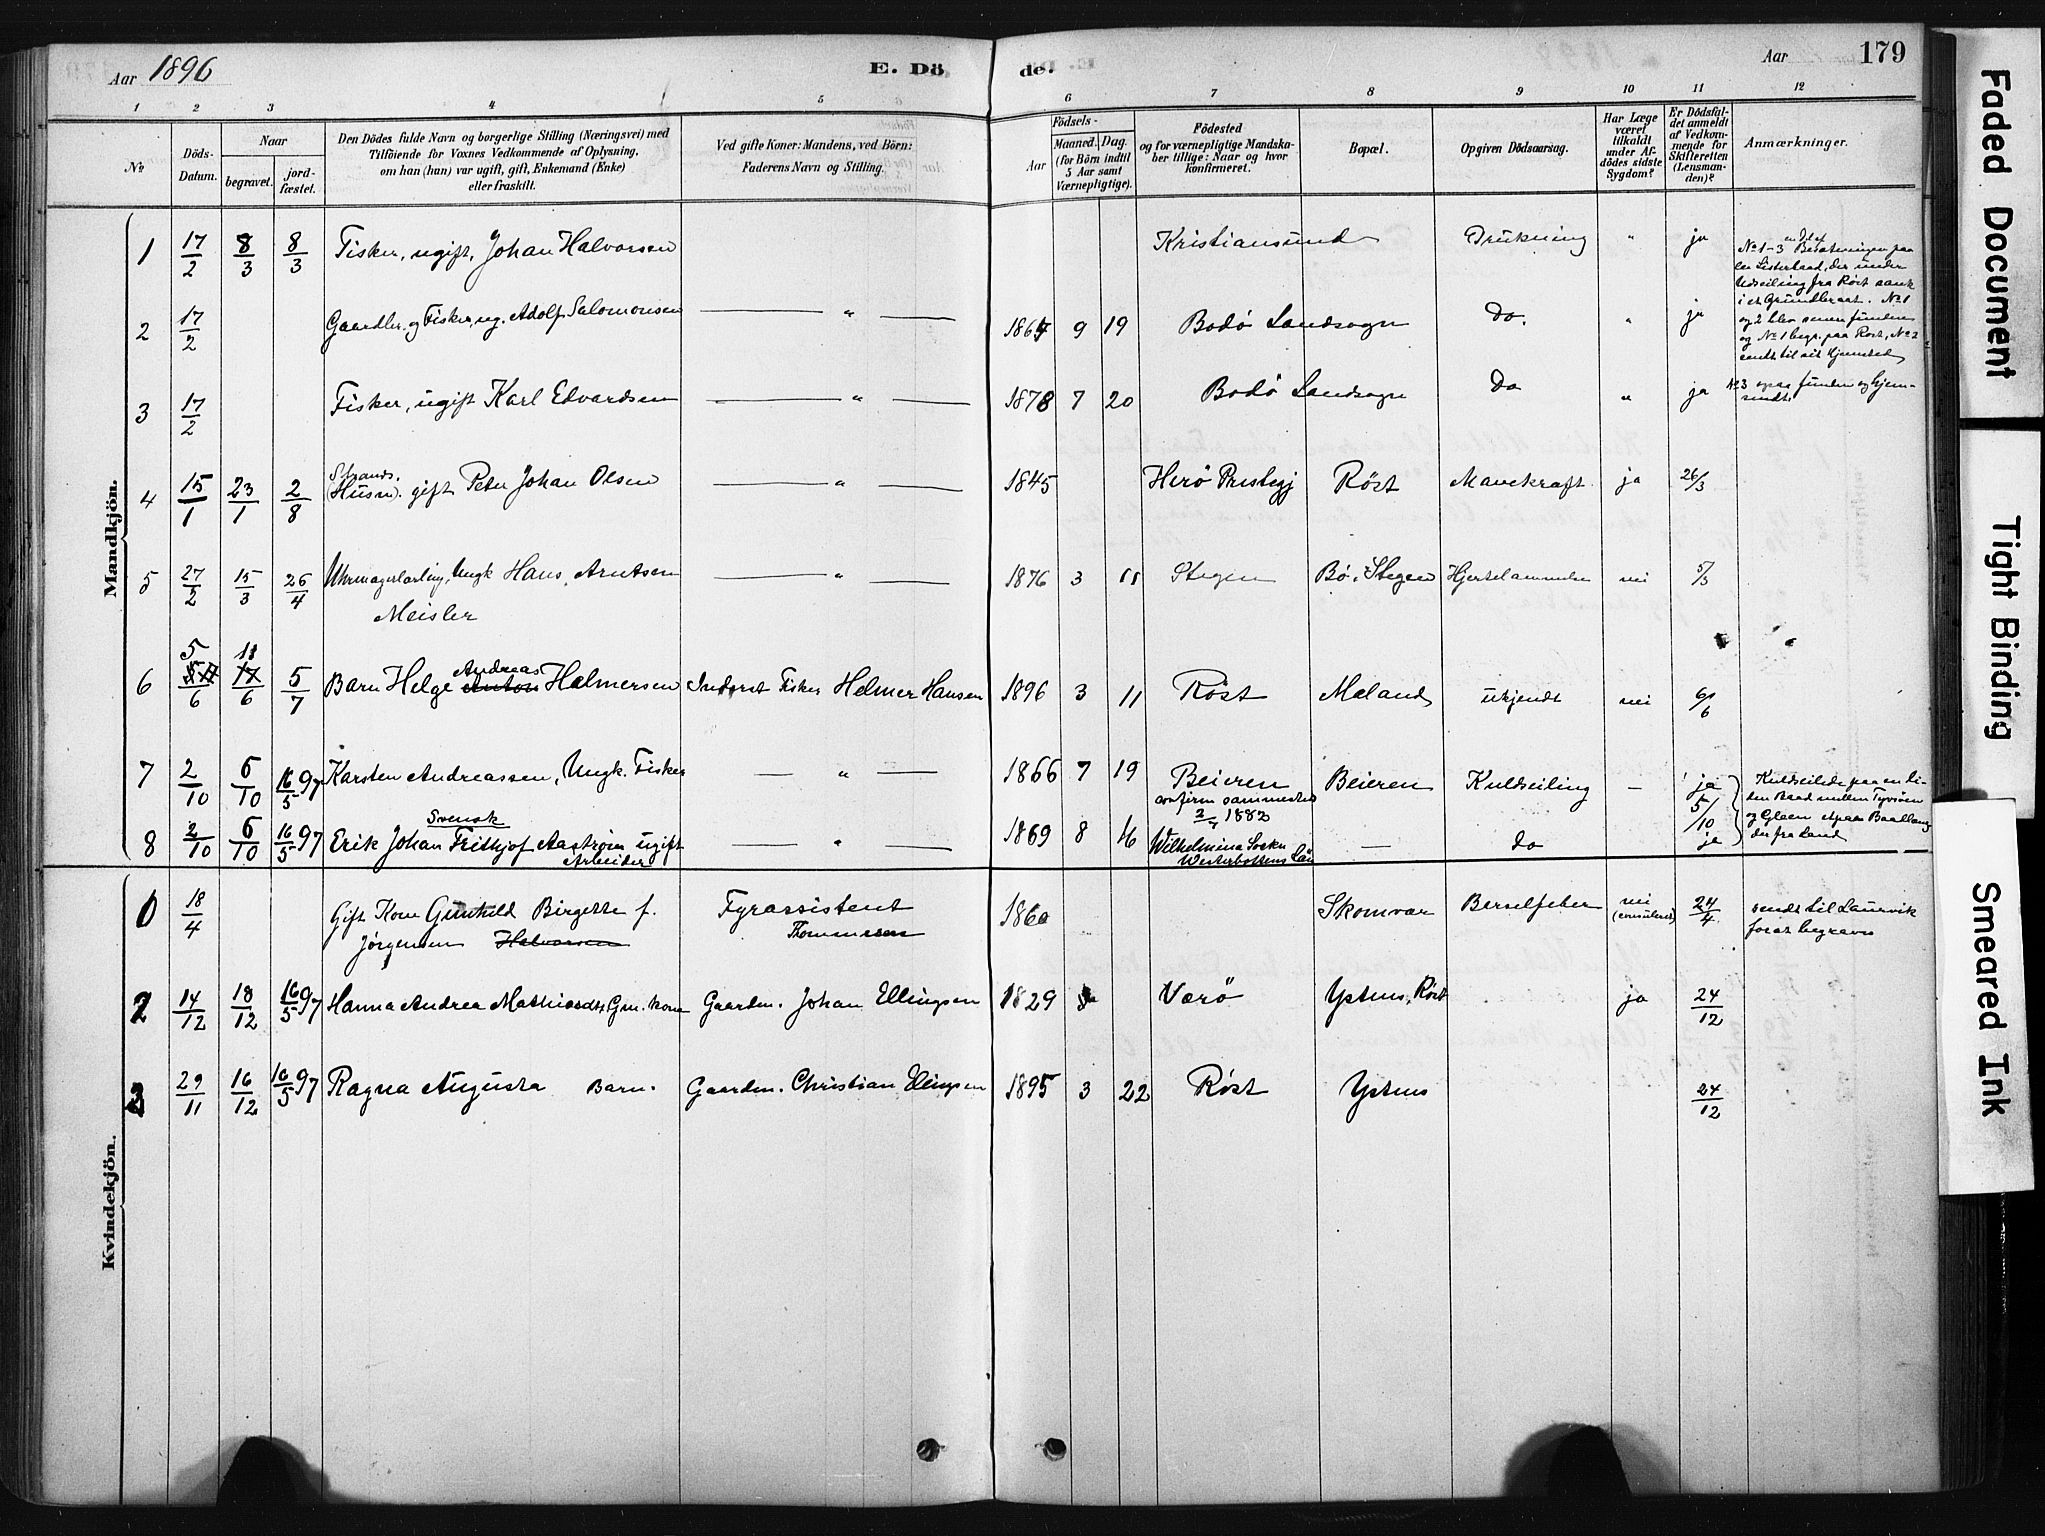 Aar 1896
E. Dö
de.
Aar
179
1 2 3 4 5 6 7 8 9 10 11 12
No
Döds-
Datum.
Naar
begravet.
jord-
fæstet.
Den Dödes fulde Navn og borgerlige Stilling (Næringsvei) med
Tilföiende for Voxnes Vedkommende af Oplysning,
om han (hun) var ugift, gift, Enkemand (Enke)
eller fraskilt.
Ved gifte Koner: Mandens, ved Börn:
Faderens Navn og Stilling.
Födsels-
Aar
Maaned. Dag.
(for Börn indtil
5 Aar samt
Værnepligtige).
Födested
og for værnepligtige Mandska-
ber tillige: Naar og hvor
konfirmeret.
Bopæl.
Opgiven Dödsaarsag.
Har Læge
været
tilkaldt
under Af-
dödes sidste
Sygdom?
Er Dödsfal-
det anmeldt
af Vedkom-
mende for
Skifteretten
(Lensman-
den)?
Anmærkninger.
Mandkjön.
1 17/2 8/3 8/3 Fisker, ugift, Johan Halvorsen Kristiansund Drukning " ja
No 1-3 Besætningen paa
en Listerbaad, der under
Udseiling fra Röst sank
i et Grundbraat. No 1
og 2 blev senere funden
og No 1 begr. paa Röst, No 2
sendt til sit Hjemsted
2 17/2 Gaardbr. og Fisker, ug. Adolf Salomonsen — " — 1867 9 19 Bodö Landsogn Do. " ja
3 17/2 Fisker, ugift Karl Edvardsen — " — 1878 7 20 Bodö Landsogn Do " ja No 3 ogsaa funden og hjem-
sendt.
Strands.
4 15/1 23/1 2/8 (Husm). gift Peter Johan Olsen — " — 1845 Herö Prestegj Röst Mavekræft ja 26/3
5 27/2 15/3 26/4 Uhrmagerlærling, Ungk Hans Arntsen — " — 1876 3 11 Stegen Bö, Stegen nei 5/3
Meisler
5 11 Andreas
6 5/6 17/6 5/7 Barn Helge Anton Helmersen Inderst Fisker Helmer Hansen 1896 3 11 Röst Meland ukjendt nei 6/6
7 2/10 6/10 16/5 97 Karsten Andreassen, Ungk. Fisker — " — 1866 7 19 Beieren Beieren Kuldseiling — ja
confirm sammesteds
1882
5/10
Kuldseilede paa en li-
ten Baad mellem Tyvsöen
og Gleen
der fra Land
Svensk
8 2/10 6/10 16/5 97 Erik Johan Frithjof Aaström ugift — " — 1869 8 16 Wilhelmina Sockn — do ja
Arbeider
Westerbottens Län
Kvindekjön.
1 18/4 Gift Kone Gunhild Birgette f. Fyrassistent 1860 Skomvær Barselfeber nei 24/4 sendt til Laurvik
Jörgensen Halvorsen Thommesen (consuleret) forat begraves
2 14/12 18/12 16/5 97 Hanna Andrea Mathiasdtr, Gm. kone Gaardm. Johan Ellingsen 1829 Værö Ystnes, Röst ja 24/12
3 29/11 16/12 16/5 97 Ragna Augusta Barn. Gaardm. Christian Elingsen 1895 3 22 Röst Ystnes 24/12
Faded Document
Tight Binding
Smeared Ink